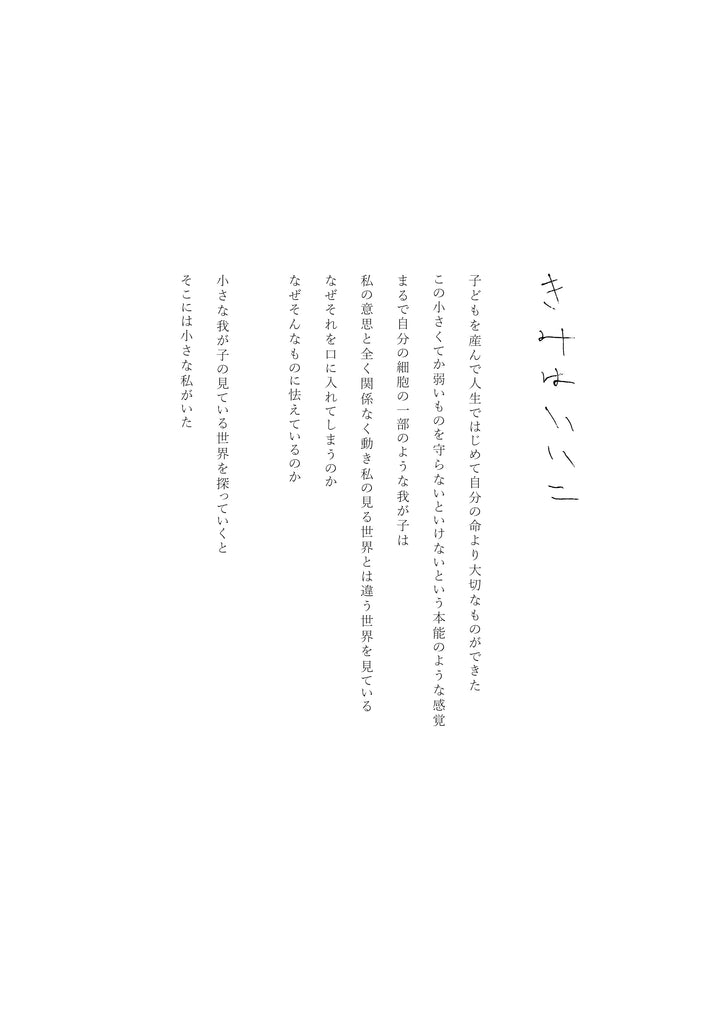 きみはいいこ
子どもを産んで人生ではじめて自分の命より大切なものができた
この小さくてか弱いものを守らないといけないという本能のような感覚
まるで自分の細胞の一部のような我が子は
私の意思と全く関係なく動き私の見る世界とは違う世界を見ている
なぜそれを口に入れてしまうのか
なぜそんなものに怯えているのか
小さな我が子の見ている世界を探っていくと
そこには小さな私がいた